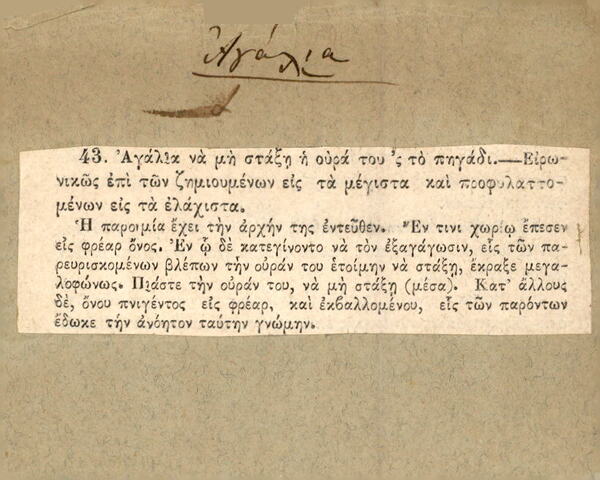 Ἀγάλια
43. Ἀγάλια νὰ μὴ στάξῃ ἡ οὐρά του 'ς τὸ πηγάδι.—Εἰρω-
νικῶς ἐπὶ τῶν ζημιουμένων εἰς τὰ μέγιστα καὶ προφυλαττο-
μένων εἰς τὰ ἐλάχιστα.
Ἡ παροιμία ἔχει τὴν ἀρχήν της ἐντεῦθεν. Ἔν τινι χωρίῳ ἔπεσεν
εἰς φρέαρ ὄνος. Ἐν ᾧ δὲ κατεγίνοντο νὰ τὸν ἐξαγάγωσιν, εἷς τῶν πα-
ρευρισκομένων βλέπων τὴν οὐράν του ἑτοίμην νὰ στάξῃ, ἔκραξε μεγα-
λοφώνως. Πιάστε τὴν οὐράν του, νὰ μὴ στάξῃ (μέσα). Κατ' ἄλλους
δὲ, ὄνου πνιγέντος εἰς φρέαρ, καὶ ἐκβαλλομένου, εἷς τῶν παρόντων
ἔδωκε τὴν ἀνόητον ταύτην γνώμην.